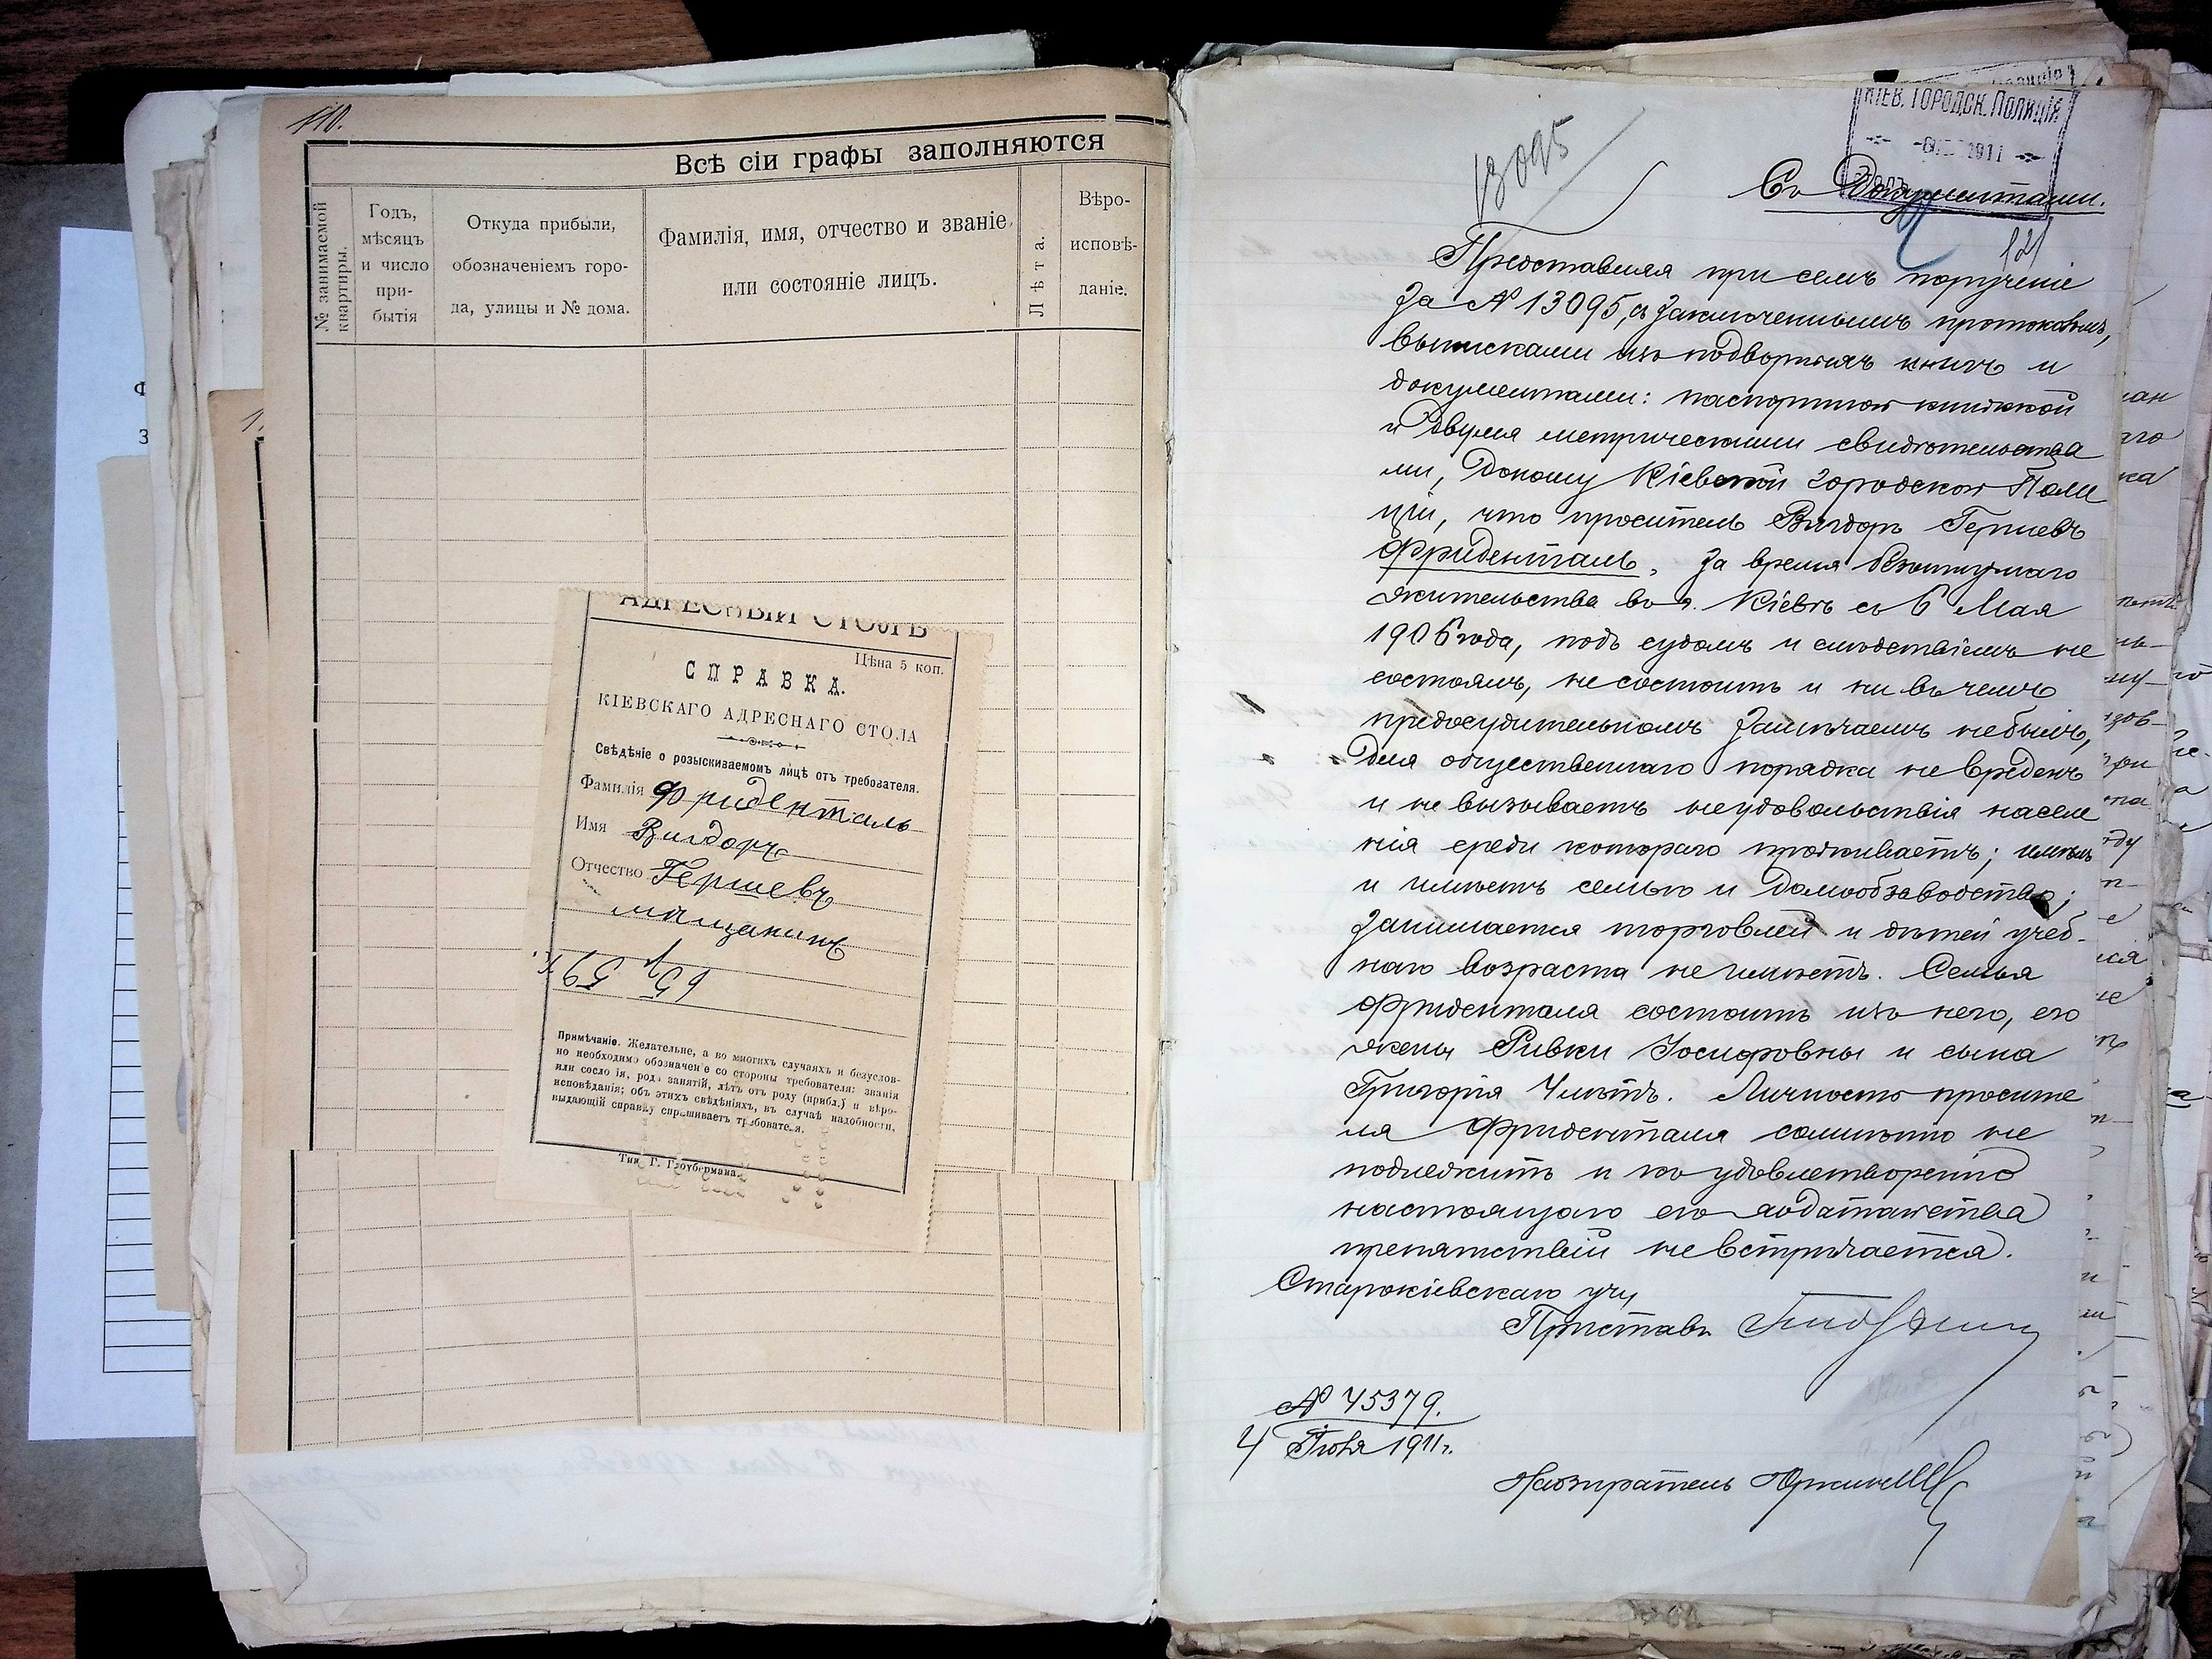 110.
Всѣ сіи графы заполняются
№ занимаемой квартиры.
Годъ, мѣсяцъ и число прибытія
Откуда прибыли, обозначеніемъ города, улицы и № дома.
Фамилія, имя, отчество и званіе или состояніе лицъ.
Лѣта.
Вѣроисповѣданіе.
АДРЕСНЫЙ СТОЛЪ
Цѣна 5 коп.
СПРАВКА.
КІЕВСКАГО АДРЕСНАГО СТОЛА
Свѣдѣніе о розыскиваемомъ лицѣ отъ требователя.
Фамилія Фриденталь
Имя Вигдоръ
Отчество Гершевъ
мѣщанинъ
Примѣчаніе. Желательно, а во многихъ случаяхъ и безуслов-
но необходимо обозначеніе со стороны требователя: званія
или сословія, рода занятій, лѣтъ отъ роду (прибл.) и вѣро-
исповѣданія; объ этихъ свѣдѣніяхъ, въ случаѣ надобности,
выдающій справку спрашиваетъ требователя.
Тип. Г. Глоубермана.
КІЕВ. ГОРОДСК. ПОЛИЦІЯ
1911
13095
Съ Документами.
121
Представляя при семъ порученіе
за № 13095, съ заключеннымъ протоколомъ,
выписками изъ подворныхъ книгъ и
документами: паспортной книжкой
и двумя метрическими свидѣтельства
ми, доношу Кіевской городской Поли
ціи, что проситель Вигдоръ Гершевъ
Фриденталь, за время безотлучнаго
жительства въ г. Кіевѣ съ 6 Мая
1906 года, подъ судомъ и слѣдствіемъ не
состоялъ, не состоитъ и ни въ чемъ
предосудительномъ замѣчаемъ не былъ,
для общественнаго порядка не вреденъ
и не вызываетъ неудовольствія населе
нія среди котораго проживаетъ; имѣлъ
и имѣетъ семью и домообзаводство;
занимается торговлей и дѣтей учеб-
наго возраста не имѣетъ. Семья
Фриденталя состоитъ изъ него, его
жены Ривки Іосифовны и сына
Григорія 4 лѣтъ. Личность просите
ля Фриденталя сомнѣнію не
подлежитъ и къ удовлетворенію
настоящаго его ходатайства
препятствій не встрѣчается.
Старокіевскаго уч,
Приставъ
№ 45379.
4 Іюля 1911 г.
Надзиратель